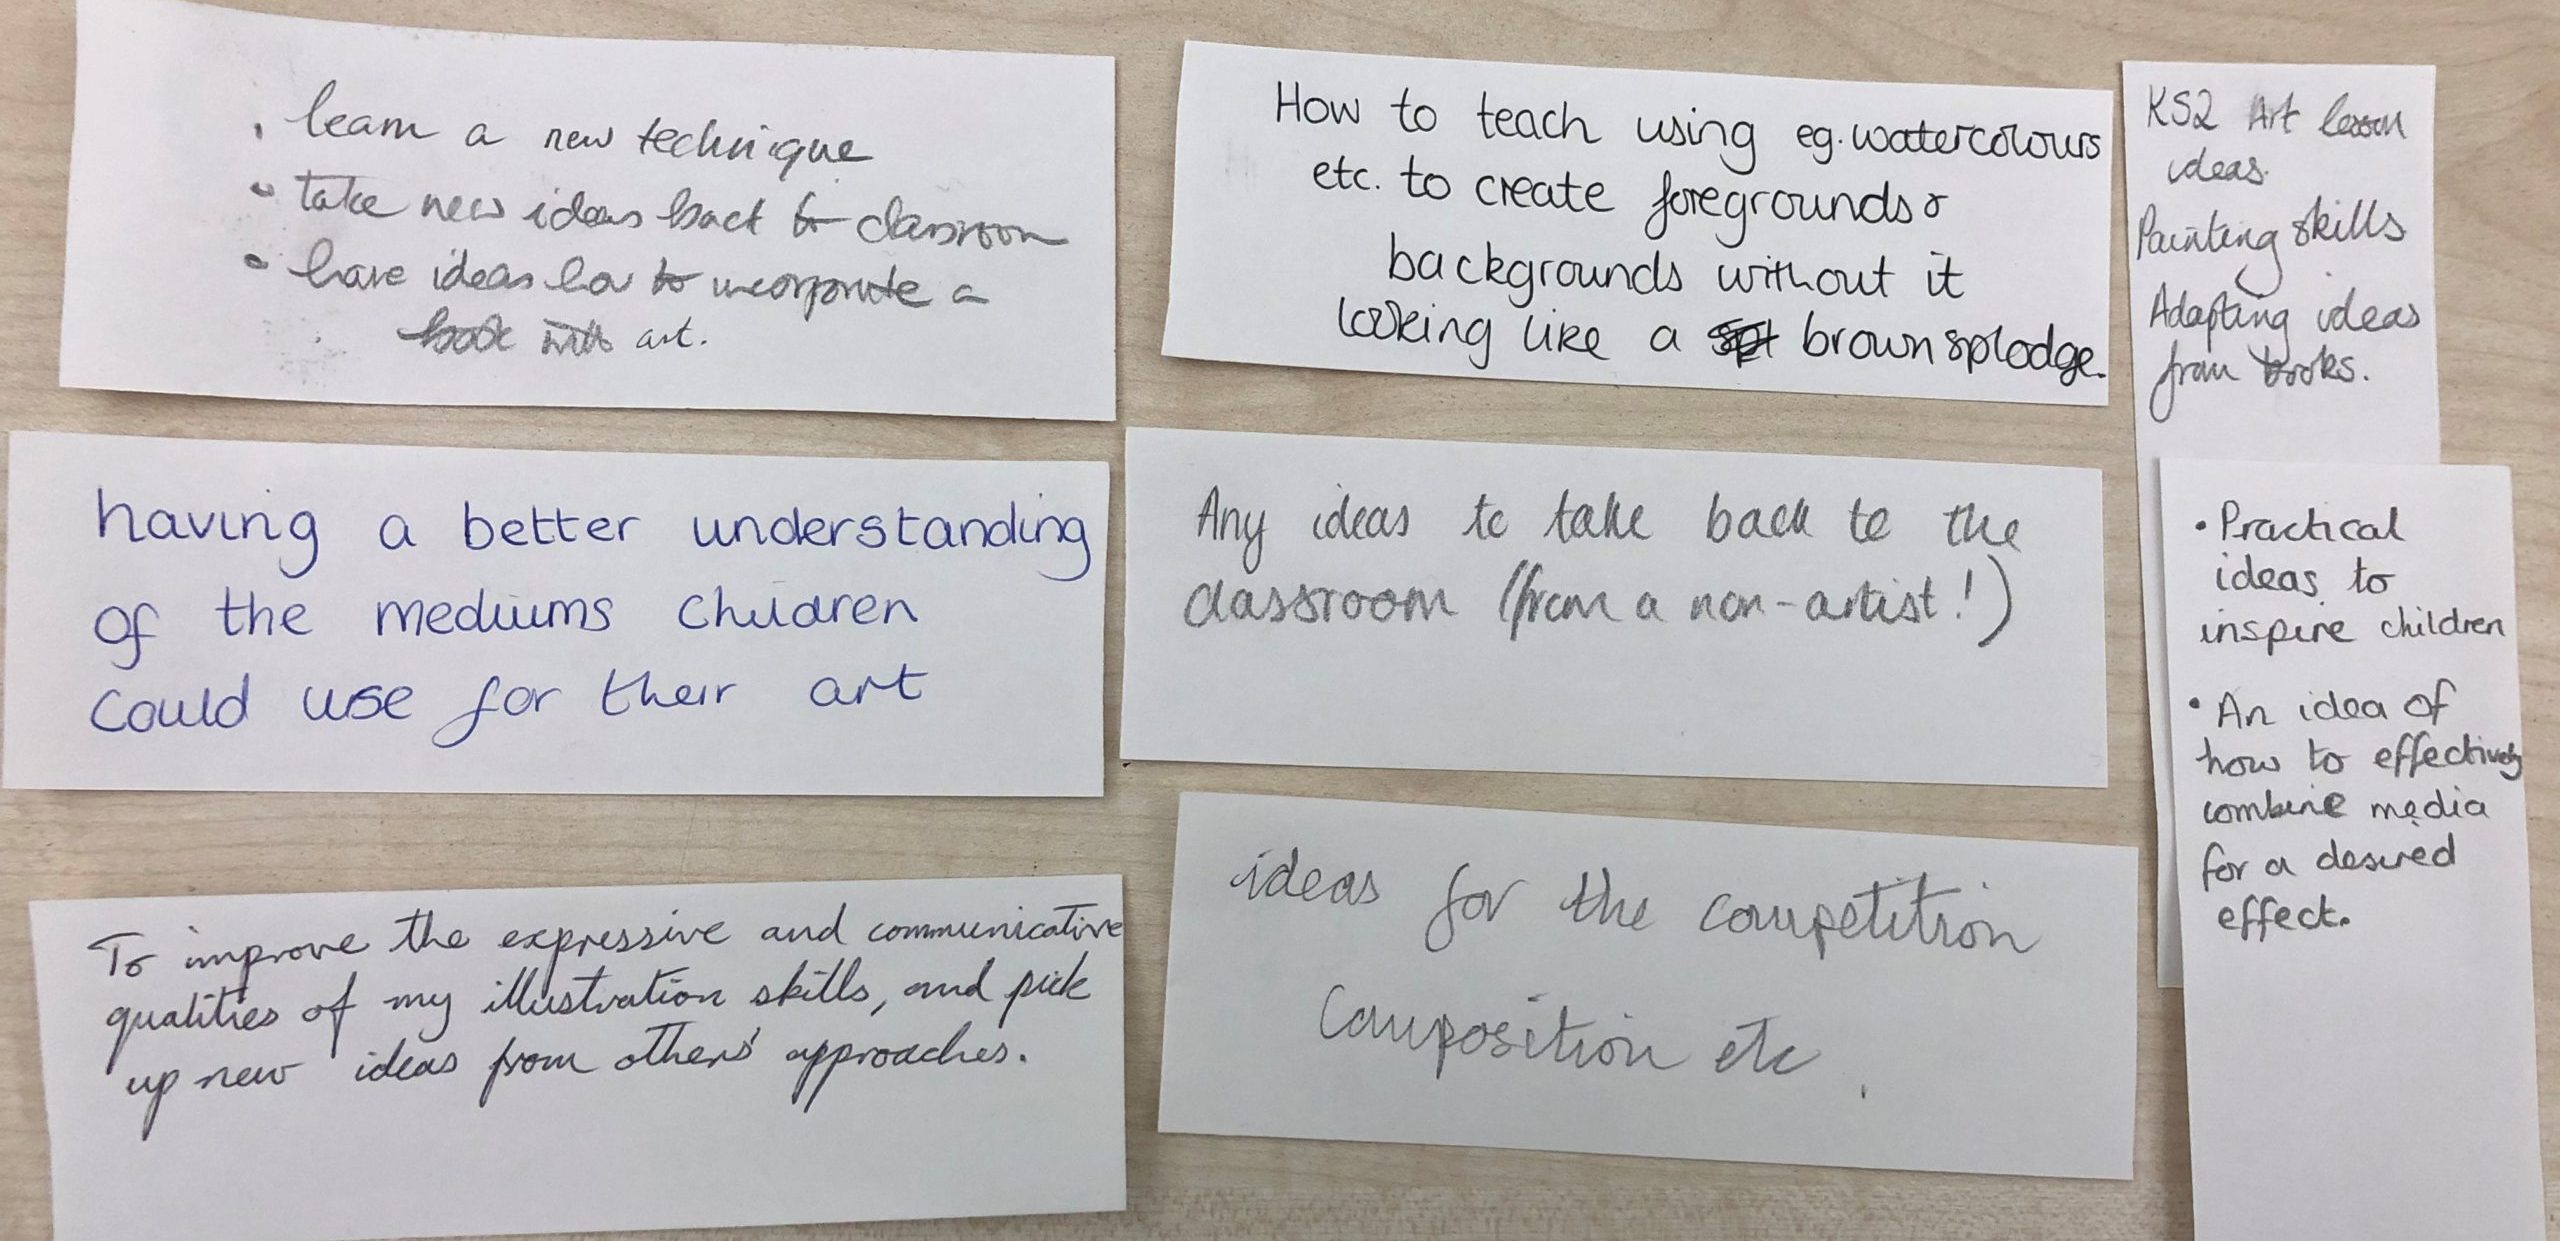 • learn a new technique
• take new ideas back to classroom
• have ideas how to incorporate a
book with art.
How to teach using eg. watercolours
etc. to create foregrounds &
backgrounds without it
looking like a brown splodge.
KS2 Art lesson
ideas.
Painting skills
Adapting ideas
from books.
having a better understanding
of the mediums children
could use for their art
Any ideas to take back to the
classroom (from a non-artist!)
• Practical
ideas to
inspire children
• An idea of
how to effectively
combine media
for a desired
effect.
To improve the expressive and communicative
qualities of my illustration skills, and pick
up new ideas from others' approaches.
ideas for the competition
Composition etc